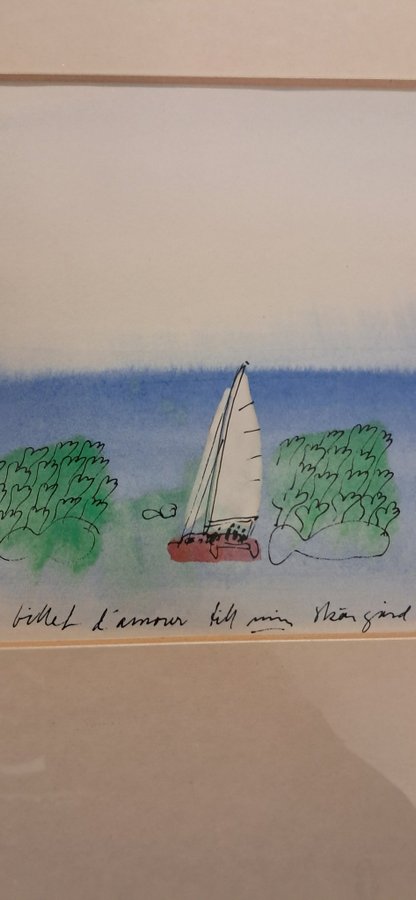 billet d'amour till min skärgård